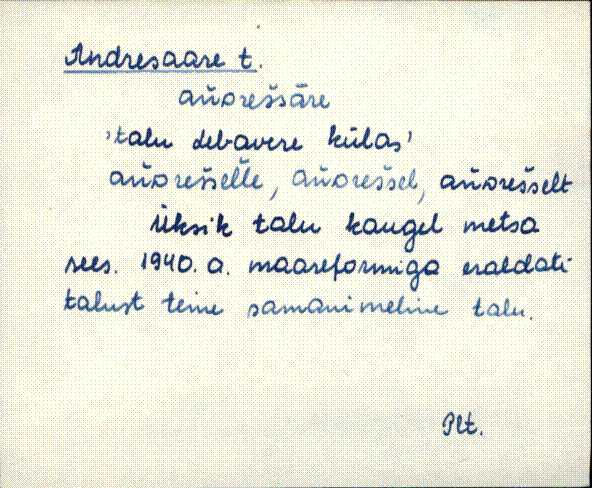 Andresaare t.
aňᴅrešsāre
'talu Lebavere külas'
aňᴅrešselle, aňᴅrešsel, aňᴅrešselt
Üksik talu kaugel metsa
sees. 1940. a. maareformiga eraldati
talust teine samanimeline talu.
Plt.